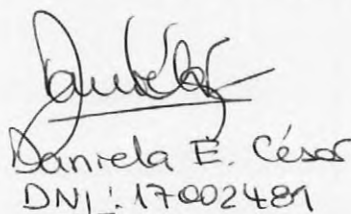 Daniela E. César
DNI: 17002489